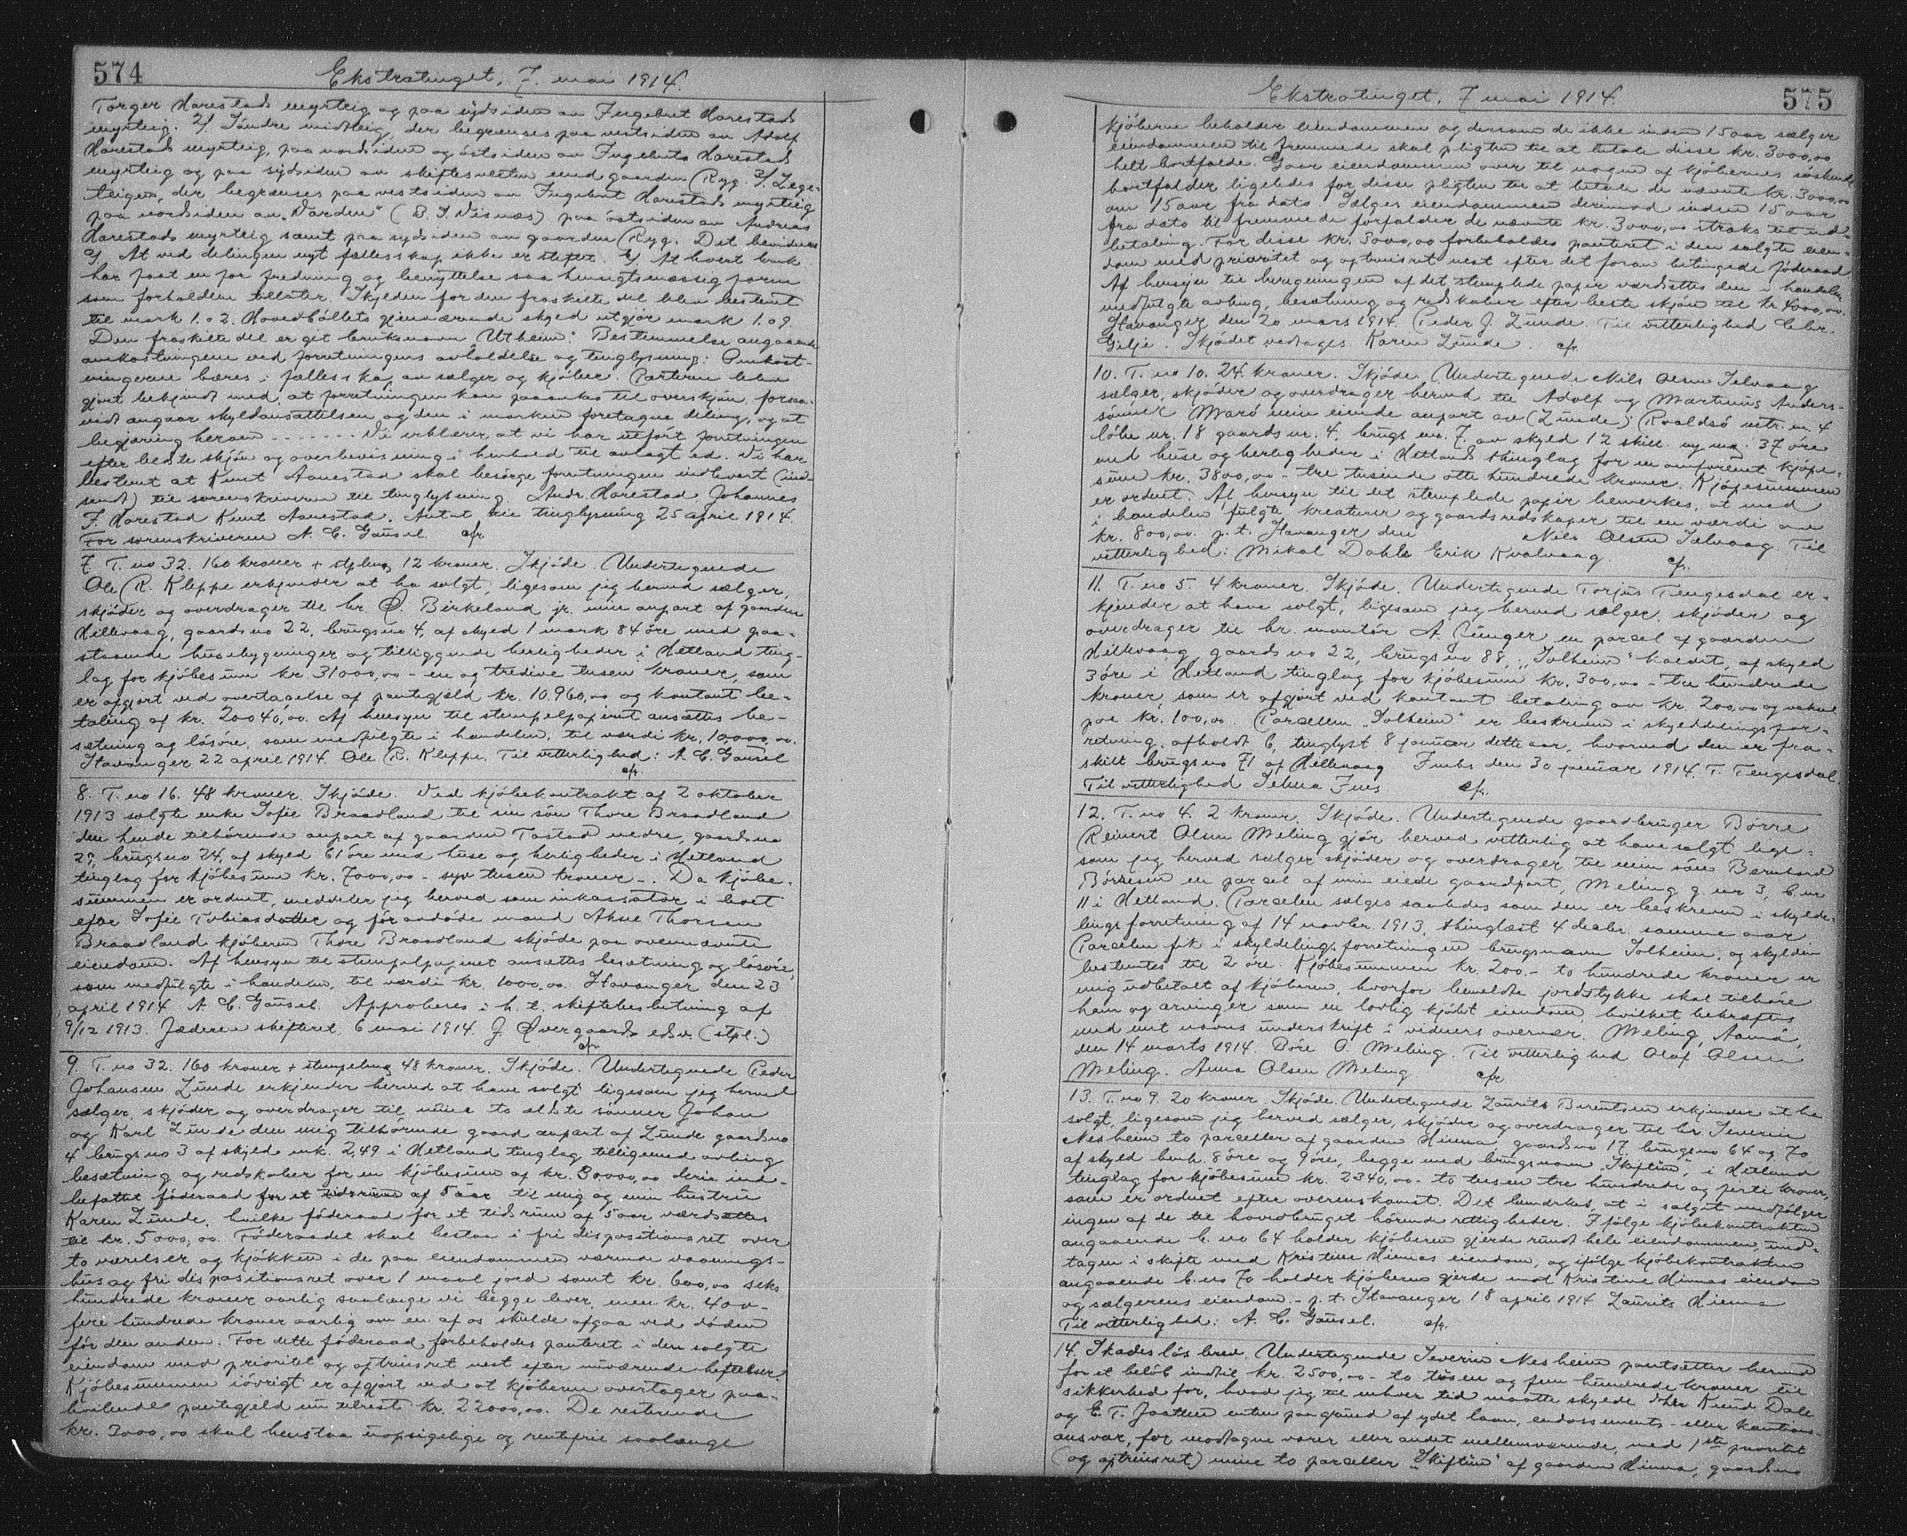 574
Ekstratinget, 7. mai 1914.
Torger Harestads myrteig og paa sydsiden av Ingebret Harestads
myrteig. 2/ Søndre midteig, der begrænses paa vestsiden av Adolf
Harestads myrteig, paa nordsiden og østsiden av Ingebrets Harestads
myrteig og paa sydsiden av skiftesresten mod gaarden Ryg. 3/
teigen, der begrænses paa vestsiden av Ingebret Harestads myrteig
paa nordsiden av "Varden" (B. I. Visnæs) paa østsiden av Andreas
Harestads myrteig samt paa sydsiden av gaarden Ryg. Det bevidnes
At ved delingen nyt fællesskap ikke er stiftet. At hvert bruk
har faat en for fredning og benyttelse saa hensigtsmæssig form
som forholdene tillater. Skylden for den fraskilte del blev bestemt
til mark 1.02. Hovedbøllets gjenværende skyld utgjør mark 1.09.
Den fraskilte del er git bruksnavn "Utheim". Bestemmelse angaaende
omkostningene ved forretningens avholdelse og tinglysning: Omkost-
ningerne bæres i fællesskap av sælger og kjøber. Parterne blev
gjort bekjendt med, at forretningen kan paaankes til overskjøn, forsaa-
vidt angaar skyldansættelsen og den i marken foretagne deling, og at
begjæring herom ------- Vi erklærer, at vi har utført forretningen
efter bedste skjøn og overbevisning i henhold til avlagt ed. Vi har
bestemt at Knut Aanestad skal besørge forretningen indlevert (ind-
sendt) til sorenskriveren til tinglysning. Andr. Harestad Johannes
T. Harestad Knut Aanestad. Antat til tinglysning 25 april 1914.
For sorenskriveren A. C. Gausel. cfr.
7. T. no 32. 160 kroner + stpling 12 kroner. Skjøde. Undertegnede
Ole R. Kleppe erkjender at ha solgt, ligesom jeg herved sælger,
skjøder og overdrager til hr. O. Birkeland jr. min anpart af gaarden
Hillevaag, gaardsno 22, brugsno 4, af skyld 1 mark 84 øre med paa-
staaende husebygninger og tilliggende herligheder i Hetland ting-
lag for kjøbesum kr. 31000,00 - en og tredive tusen kroner, som
er afgjort ved overtagelse af pantegjæld kr. 10960,00 og kontant be-
taling af kr. 20040,00. Af hensyn til stempelpapiret ansættes be-
sætning og løsøre, som medfulgte i handelen, til værdi kr. 10,000,00.
Stavanger 22 april 1914. Ole R. Kleppe. Til vitterlighed: A. C. Gausel
cfr.
8. T. no 16. 48 kroner. Skjøde. Ved kjøbekontrakt af 2 oktober
1913 solgte enke Sofie Braadland til sin søn Thore Braadland
den hende tilhørende anpart af gaarden Tastad nedre, gaardsno
29, brugsno 24, af skyld 61 øre med huse og herligheder i Hetland
tinglag for kjøbesum kr. 7000,00 - syv tusen kroner -. Da kjøbe-
summen er ordnet, meddeler jeg herved som inkassator i boet
efter Sofie Tobiasdatter og før avdøde mand Akse Thorsen
Braadland kjøberen Thore Braadland skjøde paa ovennævnte
eiendom. Af hensyn til stempelpapiret ansættes besætning og løsøre,
som medfulgte i handelen, til værdi kr. 1000,00. Stavanger den 23
april 1914. A. C. Gausel. Approberes i h. t. skiftebeslutning af
9/12 1913. Jæderen skifteret 6 mai 1914. J. Øvergaard edv. (stpl.)
cfr.
9. T. no 32. 160 kroner + stempling 48 kroner. Skjøde. Undertegnede Peder
Johansen Lunde erkjender herved at have solgt ligesom jeg herved
sælger, skjøder og overdrager til mine to ældste sønner Johan
og Karl Lunde den mig tilhørende gaard anpart af Lunde gaardsno
4 brugsno 3 af skyld mk. 2,49 i Hetland tinglag tilligemed avling
besætning og redskaber for en kjøbesum af kr. 30000,00 deri ind-
befattet føderaad for et tidsrum af 5 aar til mig og min hustru
Karen Lunde, hvilke føderaad for et tidsrum af 5 aar værdsættes
til kr. 5000,00. Føderaadet skal bestaa i fri dispositionsret over
to værelser og kjøkken i de paa eiendommen værende vaanings-
hus og fri dispositionsret over 1 maal jord samt kr. 600,00 seks
hundrede kroner aarlig saalænge vi begge lever, men kr. 400-
fire hundrede kroner aarlig om en af os skulde afgaa ved døden
før den anden. For dette føderaad forbeholdes panteret i den solgte
eiendom med prioritet og optrinsret nest efter nuværende heftelser.
Kjøbesummen iøvrigt er afgjort ved at kjøberne overtager paa-
hvilende pantegjeld kr. 22000,00. De resterende
kr. 3000,00 skal henstaa uopsigelige og rentefrie saalænge
Ekstratinget, 7 mai 1914.
575
kjøberne beholder eiendommen og dersom de ikke inden 15 aar sælger
eiendommen til fremmede skal pligten til at betale disse kr. 3000,00
helt bortfalde. Gaar eiendommen over til nogen af kjøbernes søskende
bortfalder ligeledes for disse pligten til at betale de nævnte kr. 3000,00
om 15 aar fra dato. Sælges eiendommen derimod inden 15 aar
fra dato til fremmede forfalder de nævnte kr. 3000,00 straks til ud-
betaling. For disse kr. 3000,00 forbeholdes panteret i den solgte eien-
dom med prioritet og optrinsret nest efter det foran betingede føderaad
Af hensyn til beregningen af det stemplede papir værdsættes den i handelen
medfulgte avling, besætning og redskaber efter beste skjøn til kr. 4000,00.
Stavanger den 20 mars 1914. Peder J. Lunde. Til vitterlighed Chr.
Gilje. Skjødet vedtages. Karen Lunde. cfr.
10. T. no 10. 24 kroner. Skjøde. Undertegnede Nils Olsen Selvaag
sælger, skjøder og overdrager herved til Adolf og Martinus Anders-
sønner Marø min eiende anpart av (Lunde) Roaldsø mtr. nr. 4
løbe nr. 18 gaards nr. 4, brugs no. 7. av skyld 12 skill. ny mrk: 37 øre
med huse og herligheder i Hetland thinglag for en omforenet kjøpe-
sum kr. 3800,00 - tre tusende otte hundrede kroner. Kjøpesummen
er ordnet. Af hensyn til det stemplede papir bemerkes, at med
i handelen fulgte kreaturer og gaardsredskaper til en værdi av
kr. 800,00. p. t. Stavanger den Nils Olsen Selvaag. Til
vitterlighed: Mikal Dahle Erik Kvalvaag. cfr.
11. T. no 5. 4 kroner. Skjøde. Undertegnede Torjus Tengesdal er-
kjender at have solgt, ligesom jeg herved sælger, skjøder og
overdrager til hr. montør A. Unger en parcel af gaarden
Hillevaag, gaardsno 22, brugsno 88, "Solheim" kaldet, af skyld
3 øre i Hetland tinglag for kjøbesum kr. 300,00 - tre hundrede
kroner, som er afgjort ved kontant betaling av kr. 200,00 og veksel
paa kr. 100,00. Parcellen "Solheim" er beskreven i skylddelingsfor-
retning, afholdt 6, tinglyst 8 januar dette aar, hvorved den er fra-
skilt brugsno 71 af Hillevaag den 30 januar 1914. T. Tengesdal.
Til vitterlighed Selma Fues cfr.
12. T. no 4. 2 kroner. Skjøde. Undertegnede gaardbruger Børre
Reinert Olsen Meling gjør herved vitterlig at have solgt lige-
som jeg herved sælger skjøder og overdrager til min søn Bernhard
Børresen en parcel af min eiede gaardpart, Meling g. nr 3, b. nr
11 i Hetland. Parcelen sælges saaledes som den er beskreven i skylde-
lings forretning af 14 novbr. 1913, thinglæst 4 decbr. samme aar
Parcelen fik i skyldelings forretningen brugsnavn Solheim, og skylden
bestemtes til 2 øre. Kjøbesummen kr. 200,- to hundrede kroner er
mig udbetalt af kjøberen, hvorfor bemeldte jordstykke skal tilhøre
ham og arvinger som en lovlig kjøbt eiendom, hvilket bekræftes
med mit navns underskrift i vidners overvær. Meling, Aamø,
den 14 marts 1914. Børe O. Meling. Til vitterlighed Olaf Olsen
Meling. Anna Olsen Meling cfr.
13. T. no 9. 20 kroner. Skjøde. Undertegnede Laurits Berentsen erkjender at ha
solgt, ligesom jeg herved sælger, skjøder og overdrager til hr. Severin
Nesheim to parceller af gaarden Hinna, gaardsno 17, brugsno 64 og 70
af skyld henh. 8 øre og 9 øre, begge med brugsnavn "Skiftun" i Hetland
tinglag for kjøbesum kr. 2340,00 - to tusen tre hundrede og førti kroner,
som er ordnet efter overenskomst. Det bemerkes, at i salget medfølger
ingen af de til hovedbruget hørende rettigheder. Ifølge kjøbekontrakten
angaaende b. no 64 holder kjøberen gjerde rundt hele eiendommen, und-
tagen i skifte med Kristine Hinnas eiendom, og ifølge kjøbekontrakten
angaaende b. no 70 holder kjøberen gjerde mot Kristine Hinnas eiendom
og sælgerens eiendom. - p. t. Stavanger 18 april 1914 Laurits Hinna
Til vitterlighed: A. C. Gausel. cfr.
14. Skadesløsbrev. Undertegnede Severin Nesheim pantsetter herved
for et beløb indtil kr. 2500,00 - to tusen og fem hundrede kroner til
sikkerhed for, hvad jeg til enhver tid maatte skylde d'hr. Knud Dale
og E. T. Jaatten enten paa grund af ydet laan, endossements- eller kautions-
ansvar, for modtagne varer eller andet mellemværende, med 1ste prioritet
(og optrinsret) mine to parceller "Skiftun" af gaarden Hinna, gaardsno